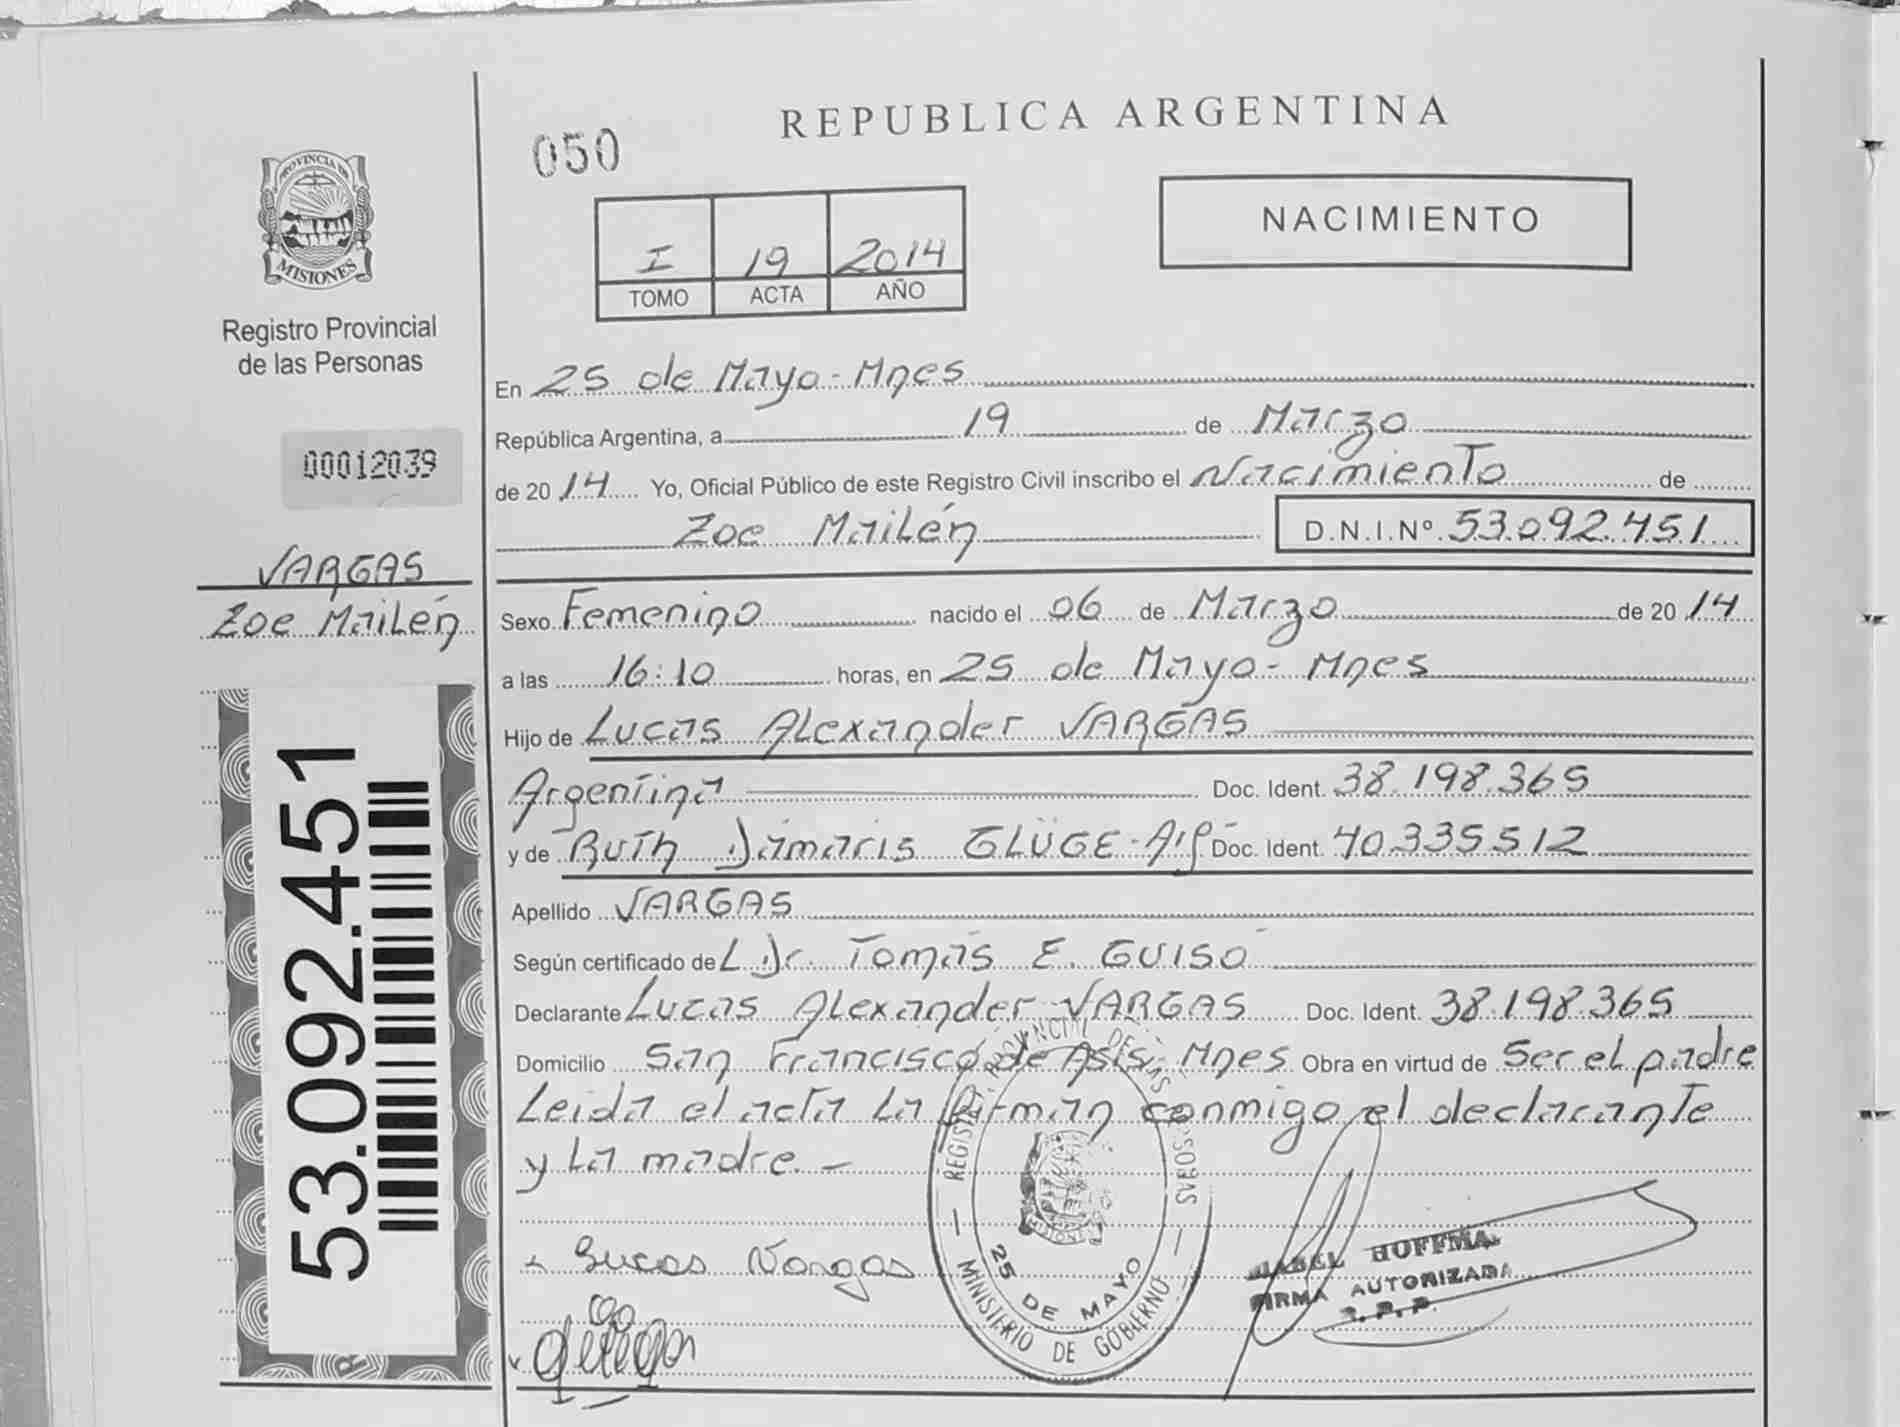 REPUBLICA ARGENTINA
050
NACIMIENTO
I 19 2014
TOMO ACTA AÑO
PROVINCIA DE
MISIONES
Registro Provincial
de las Personas
00012039
VARGAS
Zoe Mailén
53.092.451
En 25 de Mayo - Mnes
República Argentina, a 19 de Marzo
de 2014 Yo, Oficial Público de este Registro Civil inscribo el Nacimiento de
Zoe Mailén D.N.I.Nº 53.092.451
Sexo Femenino nacido el 06 de Marzo de 2014
a las 16:10 horas, en 25 de Mayo - Mnes
Hijo de Lucas Alexander VARGAS
Argentina Doc. Ident. 38.198.365
y de Ruth Dámaris GLÜGE - Doc. Ident. 40.335.512
Apellido VARGAS
Según certificado de L Dr. Tomás E. GUISO
Declarante Lucas Alexander VARGAS Doc. Ident. 38.198.365
Domicilio San Francisco de Asis - Mnes Obra en virtud de Ser el padre
Leida el acta La firman conmigo el declarante
y La madre. -
Lucas Vargas
REGISTRO PROVINCIAL DE LAS PERSONAS
25 DE MAYO
MINISTERIO DE GOBIERNO
HOFFMAN
FIRMA AUTORIZADA
R. P. P.